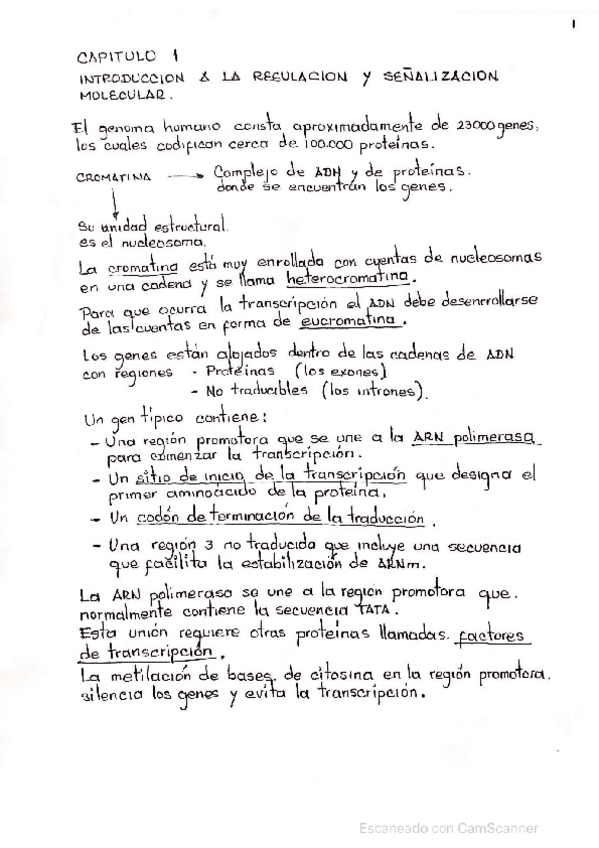 1
CAPITULO 1
INTRODUCCION A LA REGULACION Y SEÑALIZACION
MOLECULAR.
El genoma humano consta aproximadamente de 23000 genes,
los cuales codifican cerca de 100.000 proteínas.
CROMATINA → Complejo de ADN y de proteínas.
donde se encuentran los genes.
Su unidad estructural.
es el nucleosoma.
La cromatina está muy enrollada con cuentas de nucleosomas
en una cadena y se llama heterocromatina.
Para que ocurra la transcripción el ADN debe desenrrollarse
de las cuentas en forma de eucromatina.
Los genes están alojados dentro de las cadenas de ADN
con regiones - Proteínas (los exones)
- No traducibles (los intrones).
Un gen típico contiene:
- Una región promotora que se une a la ARN polimerasa
para comenzar la transcripción.
- Un sitio de inicio de la transcripción que designa el
primer aminoácido de la proteína.
- Un codón de terminación de la traducción.
- Una región 3 no traducida que incluye una secuencia
que facilita la estabilización de ARNm.
La ARN polimerasa se une a la región promotora que.
normalmente contiene la secuencia TATA.
Esta unión requiere otras proteínas llamadas. factores
de transcripción.
La metilación de bases. de citosina en la región promotora.
silencia los genes y evita la transcripción.
Escaneado con CamScanner